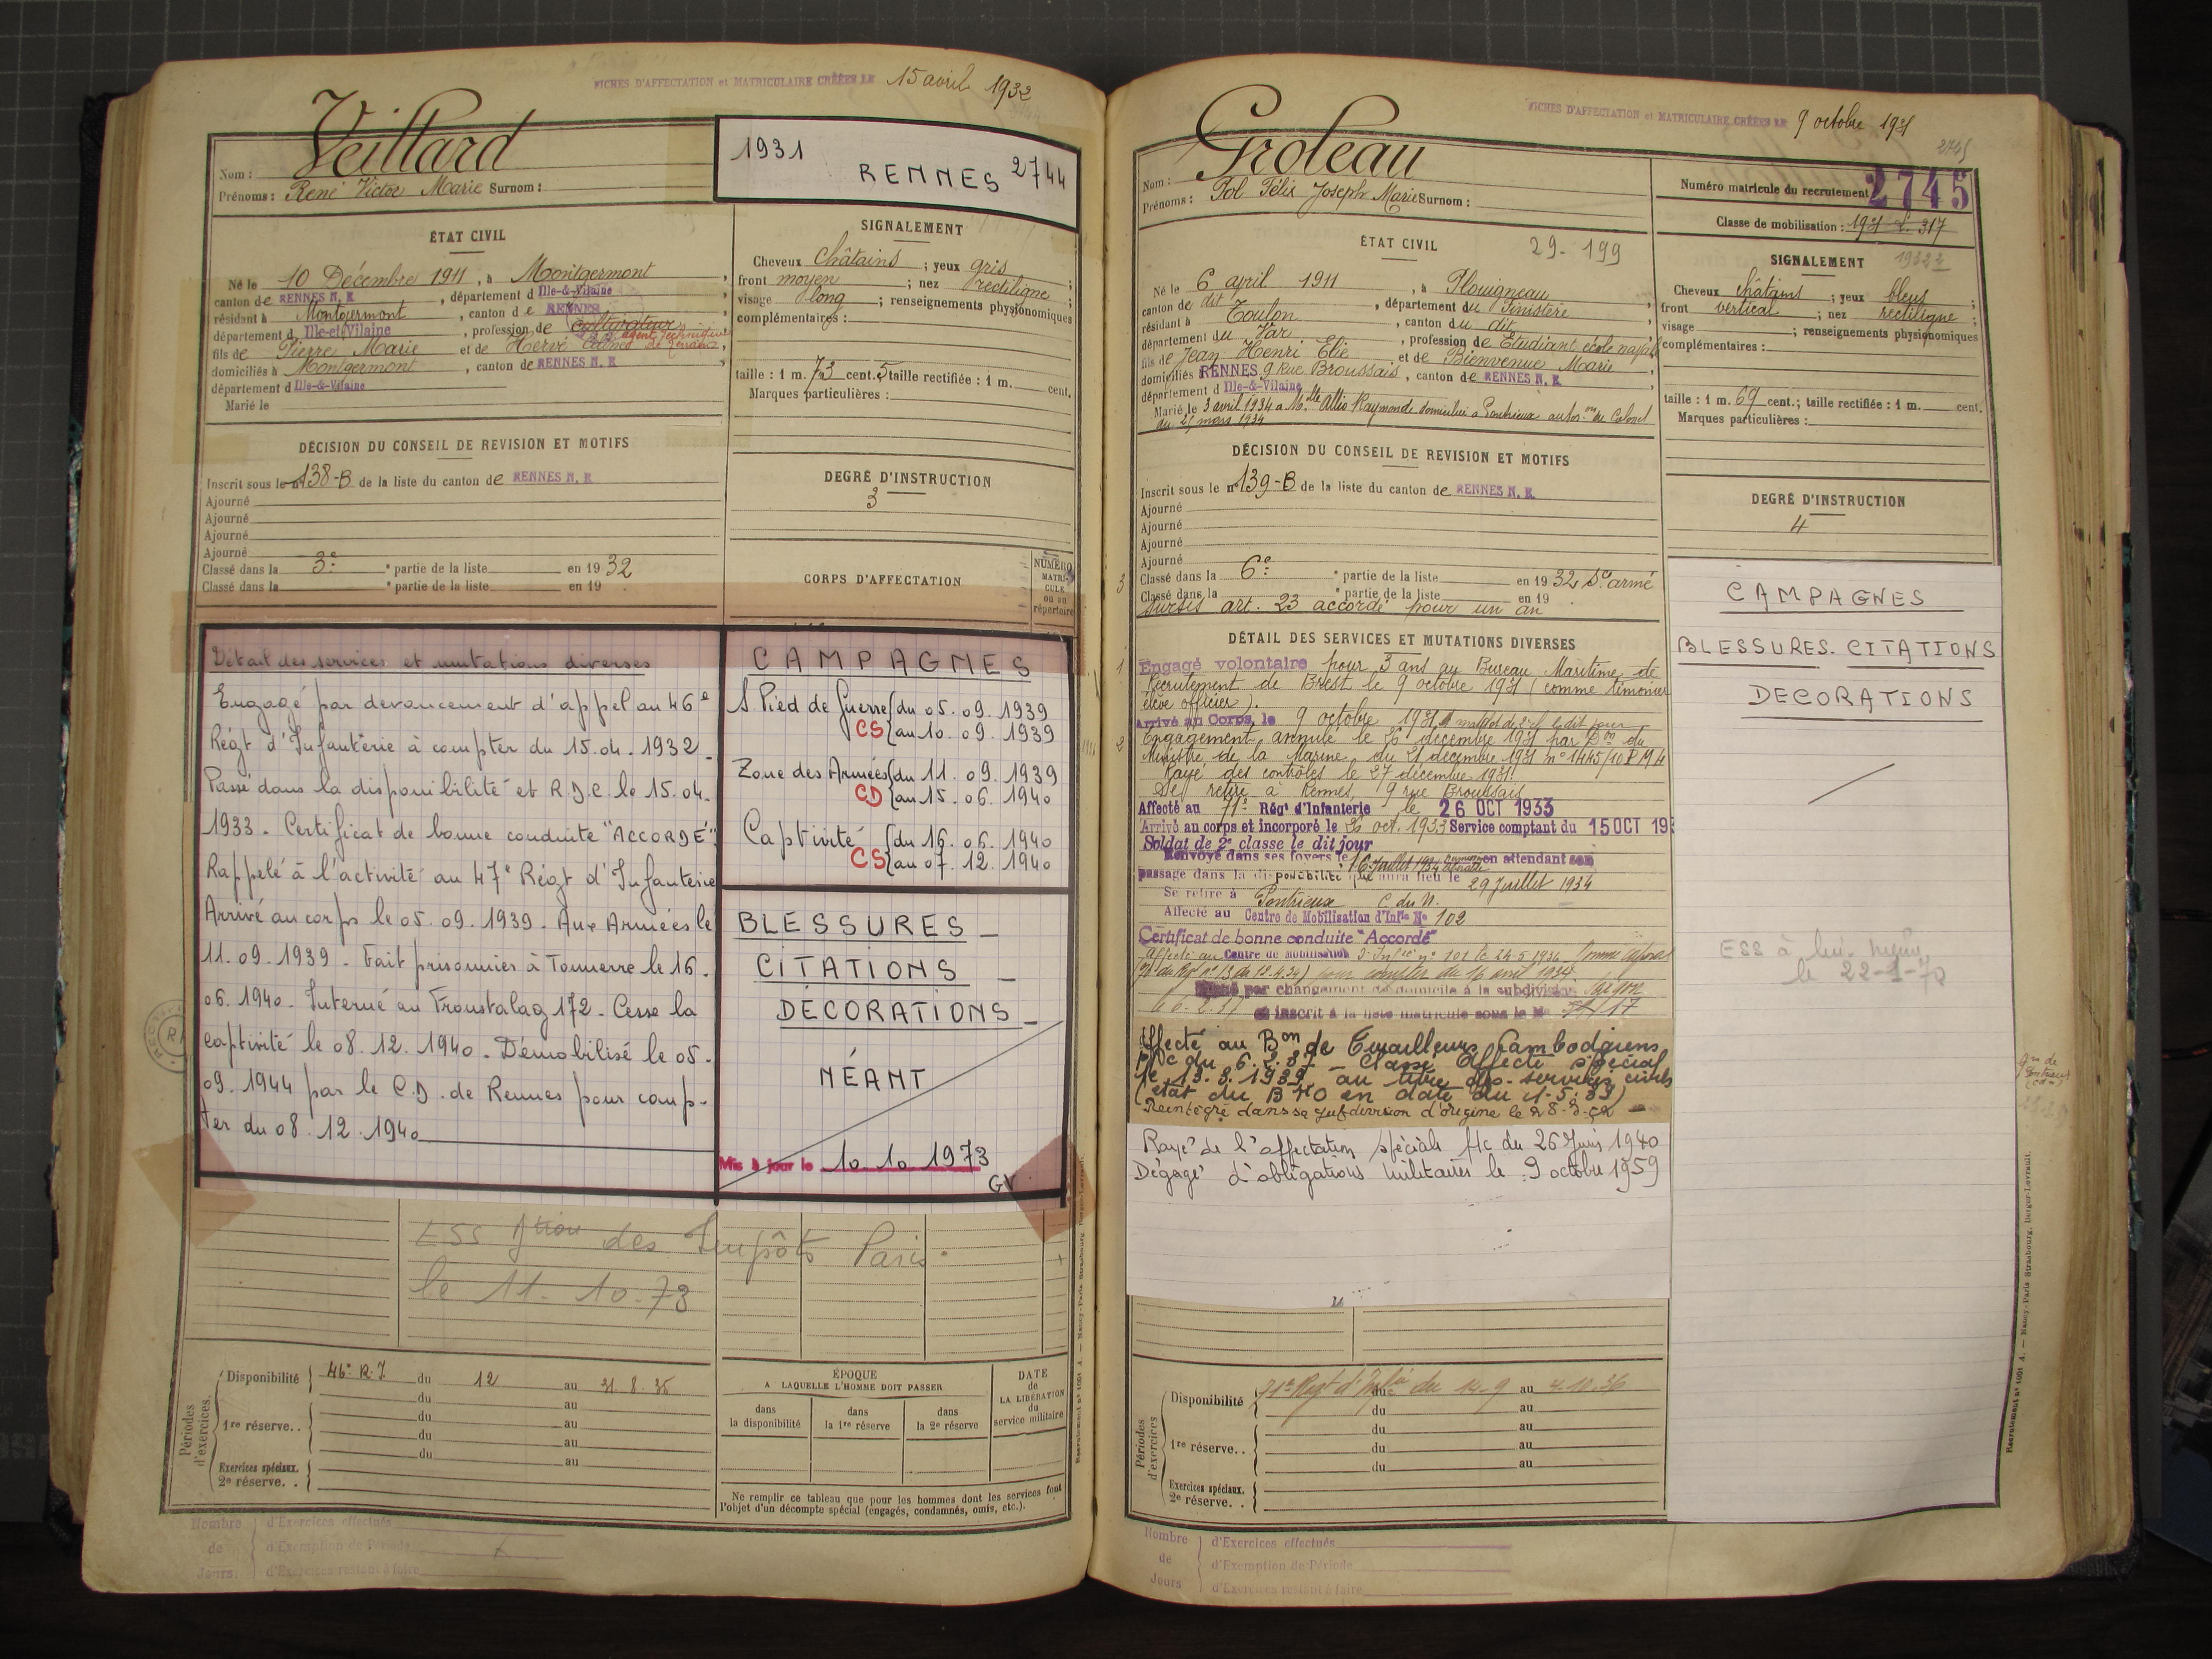 FICHES D'AFFECTATION et MATRICULAIRE CRÉÉES LE 15 avril 1932
Nom : Veillard
Prénoms : René Victor Marie Surnom :
1931
RENNES 2744
ÉTAT CIVIL
Né le 10 Décembre 1911, à Montgermont,
canton de RENNES N. E, département d Ille-&-Vilaine
résidant à Montgermont, canton de RENNES
département d Ille-et-Vilaine, profession de cultivateur
agent technique
fils de Pierre Marie et de Hervé
domiciliés à Montgermont, canton de RENNES N. E,
département d Ille-&-Vilaine
Marié le
SIGNALEMENT
Cheveux châtains ; yeux gris
front moyen ; nez rectiligne ;
visage long ; renseignements physionomiques
complémentaires :
taille : 1 m. 73 cent. 5 taille rectifiée : 1 m. cent.
Marques particulières :
DÉCISION DU CONSEIL DE REVISION ET MOTIFS
Inscrit sous le n° 138-B de la liste du canton de RENNES N. E
Ajourné
Ajourné
Ajourné
Ajourné
Classé dans la 3e partie de la liste en 1932
Classé dans la partie de la liste en 19
DEGRÉ D'INSTRUCTION
3
CORPS D'AFFECTATION
NUMÉRO
MATRI-
CULE
ou au
répertoire
Détail des services et mutations diverses
Engagé par devancement d'appel au 46e
Régt d'Infanterie à compter du 15.04.1932_
Passé dans la disponibilité et R.D.C. le 15.04.
1933 - Certificat de bonne conduite "ACCORDÉ".
Rappelé à l'activité au 47e Régt d'Infanterie
Arrivé au corps le 05.09.1939 - Aux Armées le
11.09.1939 - Fait prisonnier à Tonnerre le 16.
06.1940 - Interné au Fronstalag 172 - Cesse la
captivité le 08.12.1940 - Démobilisé le 05.
09.1944 par le C.D. de Rennes pour comp-
ter du 08.12.1940
CAMPAGNES
S Pied de Guerre { du 05.09.1939
CS { au 10.09.1939
Zone des Armées { du 11.09.1939
CD { au 15.06.1940
Captivité { du 16.06.1940
CS { au 07.12.1940
BLESSURES _
CITATIONS _
DECORATIONS _
NÉANT
Mis à jour le 10.10 1973
GV
ESS Dtion des Impôts Paris.
le 11-10-73
Périodes d'exercices.
Disponibilité 46e R.I. du 12 au 31.8.36
du au
1re réserve.. du au
du au
du au
Exercices spéciaux.
2e réserve. .
ÉPOQUE
A LAQUELLE L'HOMME DOIT PASSER
dans la disponibilité
dans la 1re réserve
dans la 2e réserve
DATE
de
LA LIBÉRATION
du
service militaire
Ne remplir ce tableau que pour les hommes dont les services font
l'objet d'un décompte spécial (engagés, condamnés, omis, etc.).
Nombre de Jours.
d'Exercices effectués
d'Exemption de Période
d'Exercices restant à faire
FICHES D'AFFECTATION et MATRICULAIRE CRÉÉES LE 9 octobre 1931
2745
Nom : Groleau
Prénoms : Pol Félix Joseph Marie Surnom :
Numéro matricule du recrutement 2745
Classe de mobilisation : 1931
ÉTAT CIVIL 29-199
Né le 6 april 1911, à Plouigneau,
canton de dit, département du Finistère
résidant à Toulon, canton du dit,
département du Var, profession de Etudiant école navale
fils de Jean Henri Elie et de Bienvenue Marie
domiciliés RENNES 9 Rue Broussais, canton de RENNES N. E,
département d Ille-&-Vilaine
Marié le 3 avril 1934 a Mlle Allio Raymonde domiciliée a Pontrieux autoron du Colonel
du 25 mars 1934
SIGNALEMENT
Cheveux châtains ; yeux bleus ;
front vertical ; nez rectiligne ;
visage ; renseignements physionomiques
complémentaires :
taille : 1 m. 69 cent.; taille rectifiée : 1 m. cent.
Marques particulières :
DÉCISION DU CONSEIL DE REVISION ET MOTIFS
Inscrit sous le n° 139-B de la liste du canton de RENNES N. E
Ajourné
Ajourné
Ajourné
Ajourné
Classé dans la 6e partie de la liste en 1932 Sce armé
Classé dans la partie de la liste en 19
Sursis art. 23 accordé pour un an
DEGRÉ D'INSTRUCTION
4
DÉTAIL DES SERVICES ET MUTATIONS DIVERSES
Engagé volontaire pour 3 ans au Bureau Maritime de
Recrutement de Brest le 9 octobre 1931 (comme timonier
élève officier).
Arrivé au Corps, le 9 octobre 1931, matelot de 2e cl. le dit jour
Engagement annulé le 26 décembre 1931 par Don du
Ministre de la Marine, du 21 décembre 1931 n° 1445/10
Rayé des contrôles le 27 décembre 1931.
Se retire à Rennes, 9 rue Broussais
Affecté au 71e Régt d'Infanterie le 26 OCT 1933
Arrivé au corps et incorporé le 26 oct. 1933 Service comptant du 15 OCT 193
Soldat de 2e classe le dit jour
Renvoyé dans ses foyers le 16 Juillet 1934 en attendant son
passage dans la disponibilité qui aura lieu le 29 Juillet 1934
Se retire à Pontrieux C. du N.
Affecté au Centre de Mobilisation d'Infie No 102
Certificat de bonne conduite "Accordé"
Affecté au Centre de Mobilisation d'Infie n° 101 le 24-5-1936.
pour compter du 16 avril 1934
par changement de domicile à la subdivision Saigon
inscrit à la liste matricule sous le N°
Affecté au Bon de Tirailleurs Cambodgiens
p/c du 6.2.37 - Classé Affecté spécial
le 13.8.1939 au titre des services civils
(état du B MO en date du 11-5-39)
Réintégré dans sa subdivision d'origine le 28-8-52 -
Rayé de l'affectation spéciale p/c du 26 Juin 1940
Dégagé d'obligations militaires le 9 octobre 1959
CAMPAGNES
BLESSURES. CITATIONS
DECORATIONS
ESS à lui même
le 22-1-70
Périodes d'exercices
Disponibilité 71e Régt d'Infie du 14-9 au 4.10.36
du au
du au
1re réserve. . du au
du au
Exercices spéciaux.
2e réserve. .
Nombre de Jours
d'Exercices effectués
d'Exemption de Période
d'Exercices restant à faire